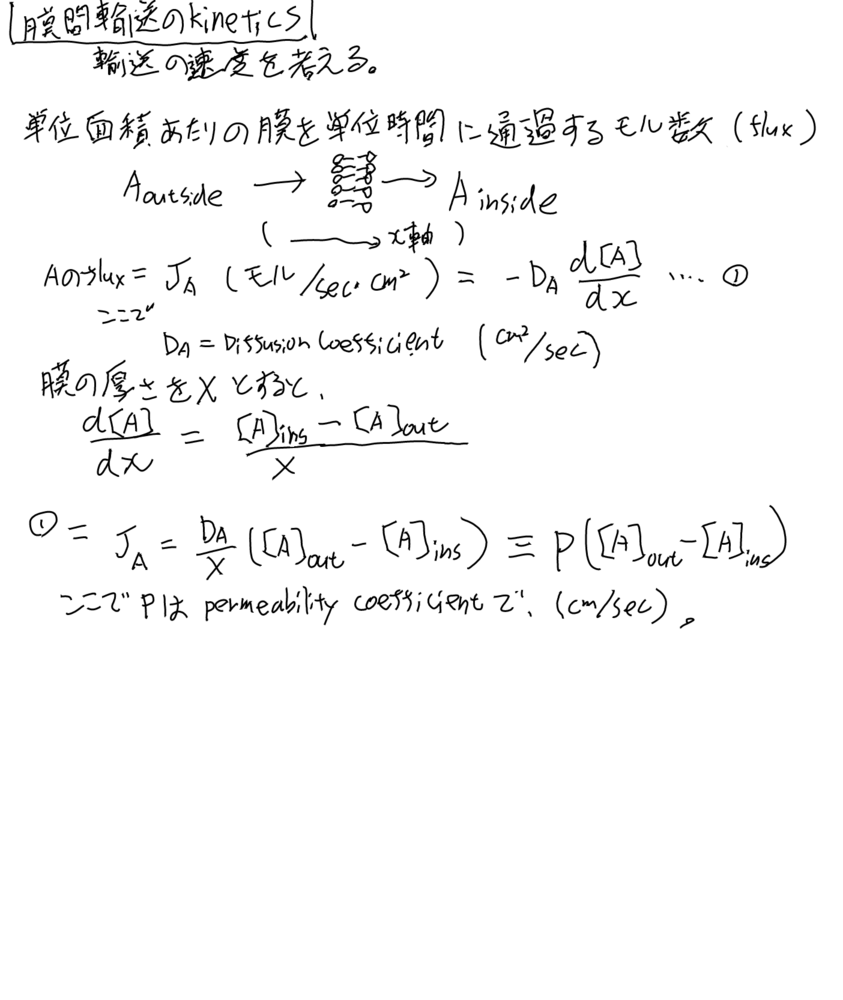 膜間輸送のkinetics
輸送の速度を考える。
単位面積あたりの膜を単位時間に通過するモル数(flux)
A outside → → A inside
( → x軸 )
Aのflux = J_A (モル/sec・cm²) = -D_A d[A]/dx ‥‥ ①
ここで
D_A = Diffusion Coefficient (cm²/sec)
膜の厚さをXとすると、
d[A]/dx = ([A]ins - [A]out)/X
① = J_A = D_A/X ([A]out - [A]ins) ≡ P([A]out - [A]ins)
ここで Pは permeability coefficient で、(cm/sec)。